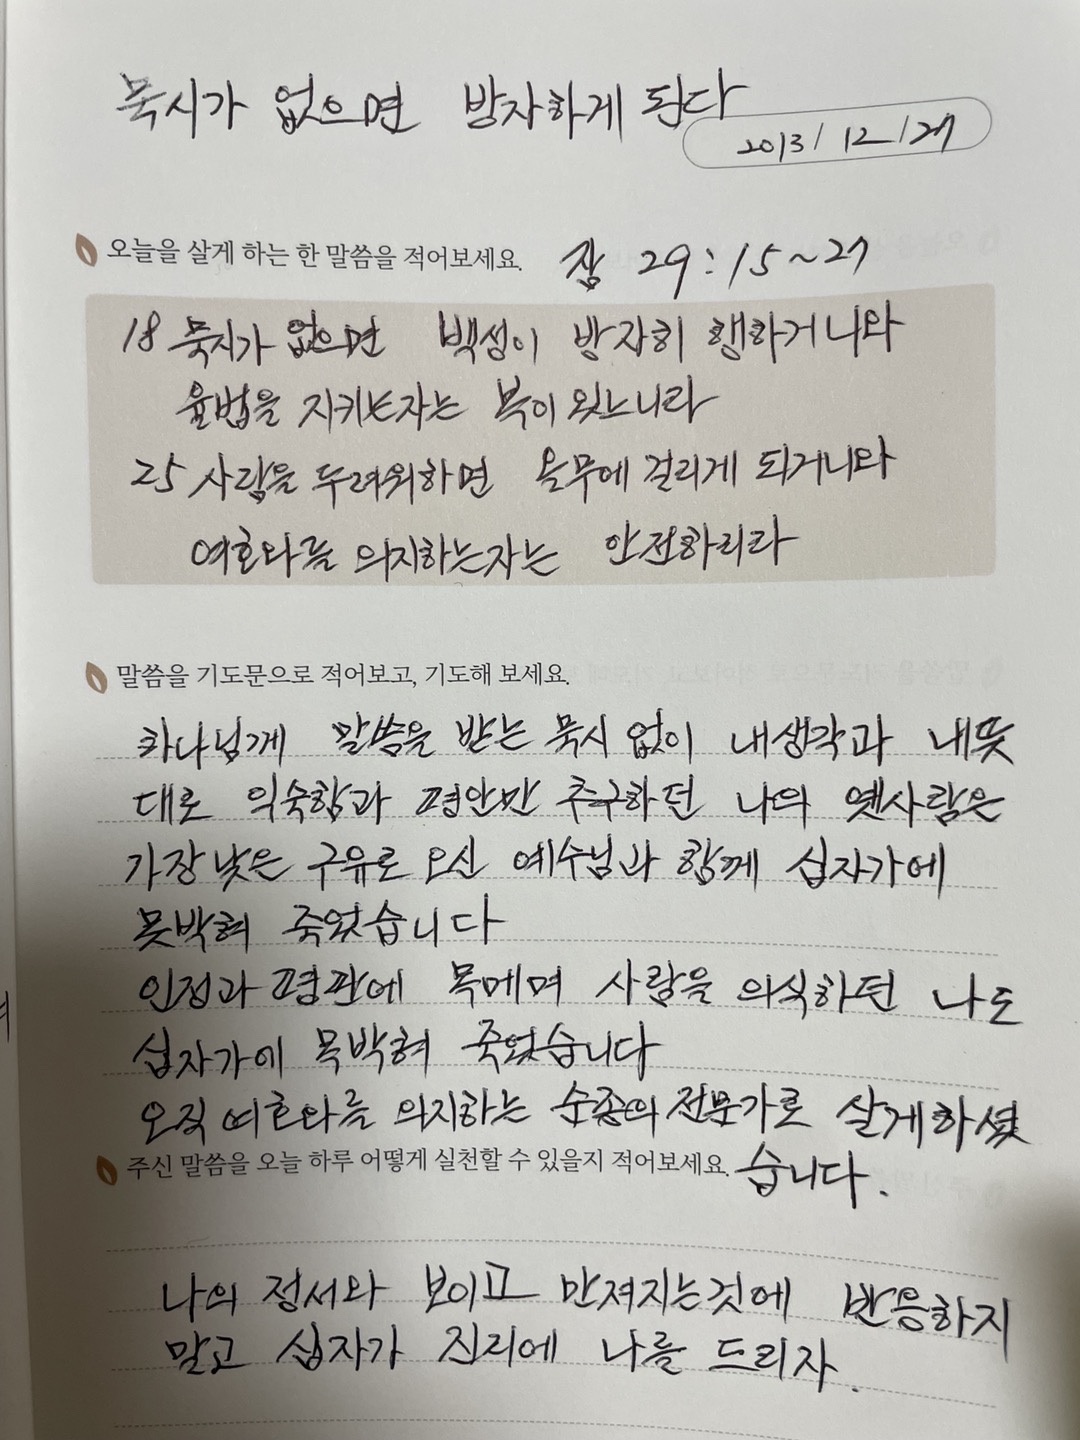 묵시가 없으면 방자하게 된다
2013/12/27
오늘을 살게 하는 한 말씀을 적어보세요. 잠 29:15~27
18 묵시가 없으면 백성이 방자히 행하거니와
율법을 지키는자는 복이 있느니라
25 사람을 두려워하면 올무에 걸리게 되거니와
여호와를 의지하는자는 안전하리라
말씀을 기도문으로 적어보고, 기도해 보세요.
하나님께 말씀을 받는 묵시 없이 내생각과 내뜻
대로 익숙함과 평안만 추구하던 나의 옛사람은
가장 낮은 구유로 오신 예수님과 함께 십자가에
못박혀 죽었습니다
인정과 평판에 목메며 사람을 의식하던 나도
십자가에 못박혀 죽었습니다
오직 여호와를 의지하는 순종의 전문가로 살게하셨
습니다.
주신 말씀을 오늘 하루 어떻게 실천할 수 있을지 적어보세요.
나의 정서와 보이고 만져지는것에 반응하지
말고 십자가 진리에 나를 드리자.